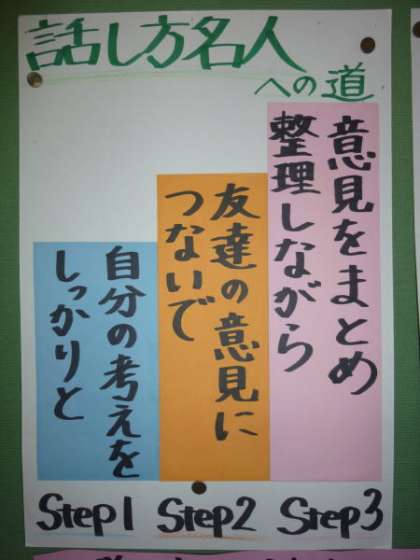 話し方名人
への道
自分の考えを
しっかりと
友達の意見に
つないで
意見をまとめ
整理しながら
Step1
Step2
Step3